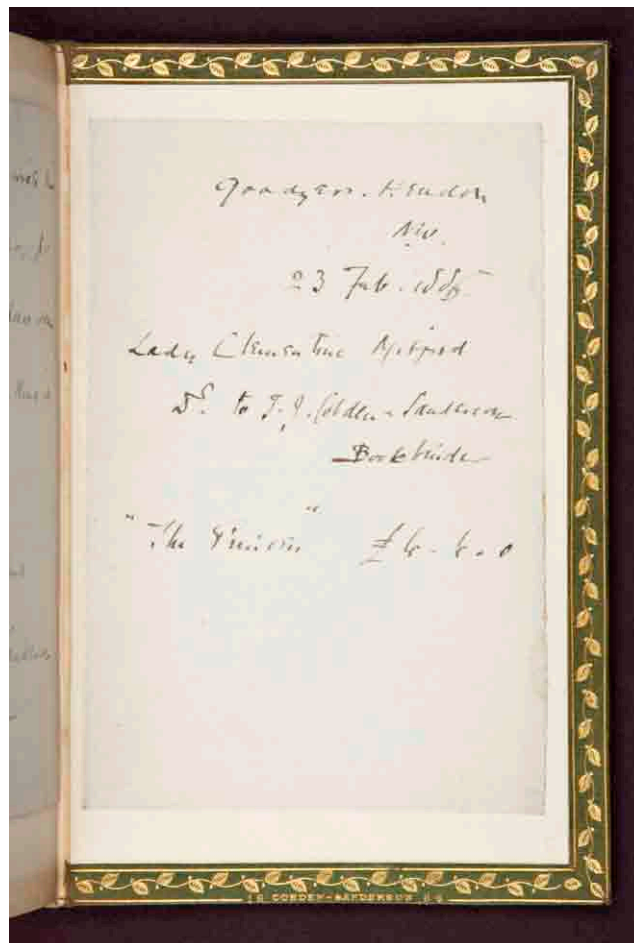 Goodyers. Hendon
NW.
23 Feb. 1885
Lady Clementine Mitford
Dr. to T. J. Cobden-Sanderson
Bookbinder
"The
COBDEN-SANDERSON